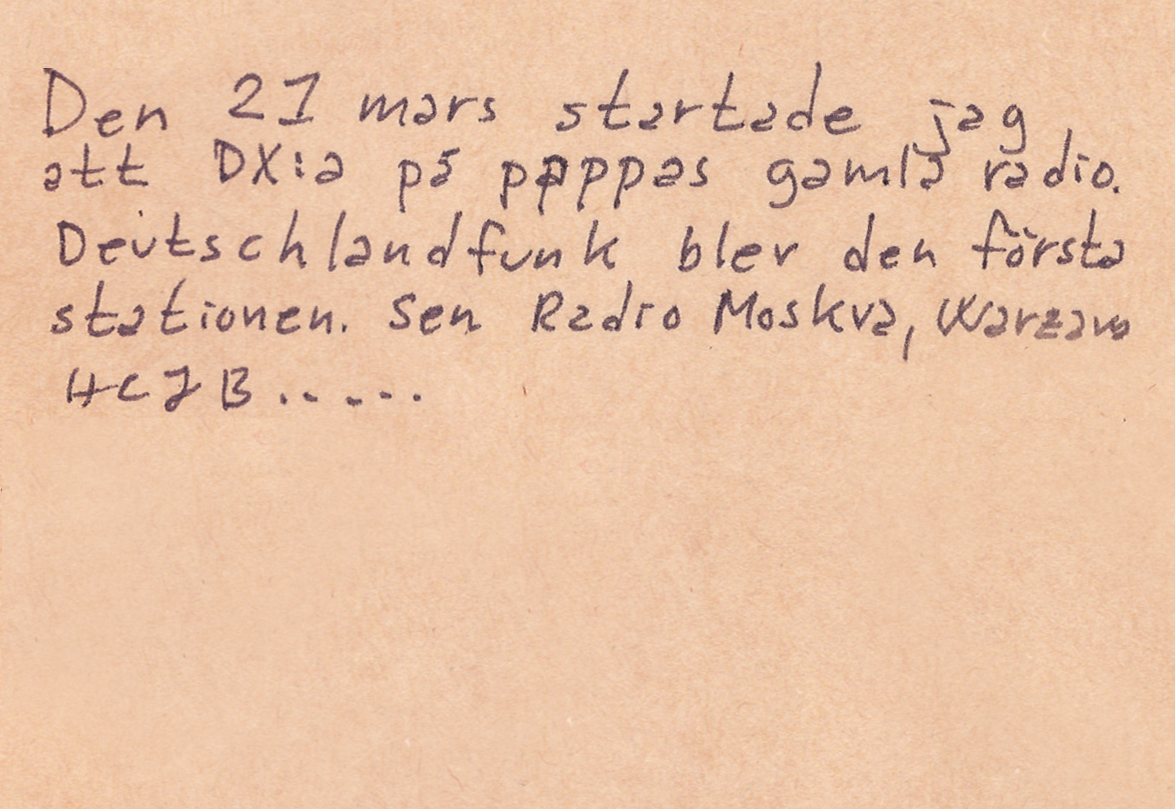 Den 21 mars startade jag
att DX:a på pappas gamla radio.
Deutschlandfunk blev den första
stationen. Sen Radio Moskva, Warzawa
HCJB.....